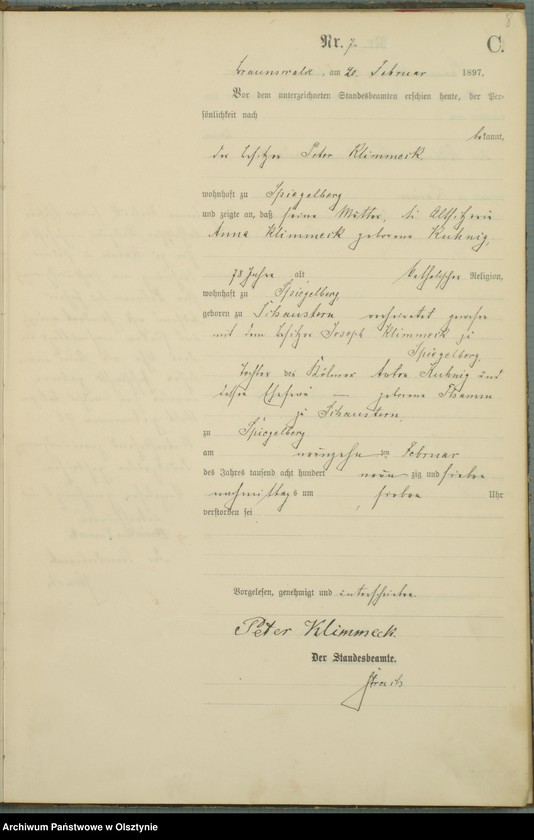 8
Nr. 7.
C.
Braunswalde, am 20. Februar 1897.
Vor dem unterzeichneten Standesbeamten erschien heute, der Per-
sönlichkeit nach
bekannt,
der Besitzer Peter Klimmeck.
wohnhaft zu Spiegelberg
und zeigte an, daß seine Mutter, die Altsitzerin
Anna Klimmeck geborene Kuhnig,
78 Jahre alt, katholischer Religion,
wohnhaft zu Spiegelberg,
geboren zu Schaustern, verheiratet gewesen
mit dem Besitzer Joseph Klimmeck zu
Spiegelberg.
Tochter des Kölmer Anton Kuhnig und
dessen Ehefrau — geborene Thamm
zu Schaustern,
zu Spiegelberg
am neunzehn ten Februar
des Jahres tausend acht hundert neun zig und sieben
nachmittags um sieben Uhr
verstorben sei
Vorgelesen, genehmigt und unterschrieben.
Peter Klimmeck.
Der Standesbeamte.
Archiwum Państwowe w Olsztynie